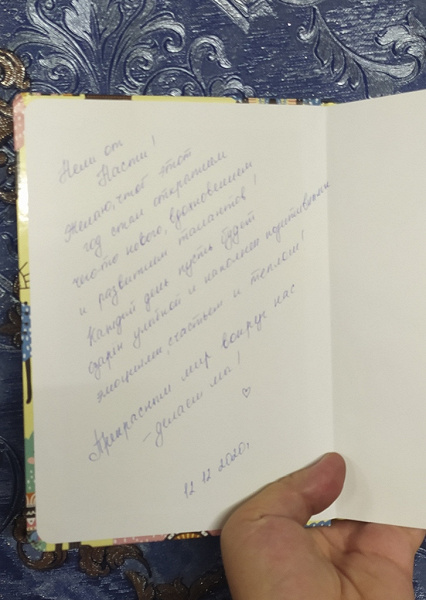 Нели от
Насти!
Желаю, чтоб этот
год стал открытием
чего-то нового, вдохновением
и развитием талантов!
Каждый день пусть будет
озарён улыбкой и наполнен позитивными
эмоциями, счастьем и теплом!
Прекрасным мир вокруг нас
- делаем мы!
♡
12.12.2020г.